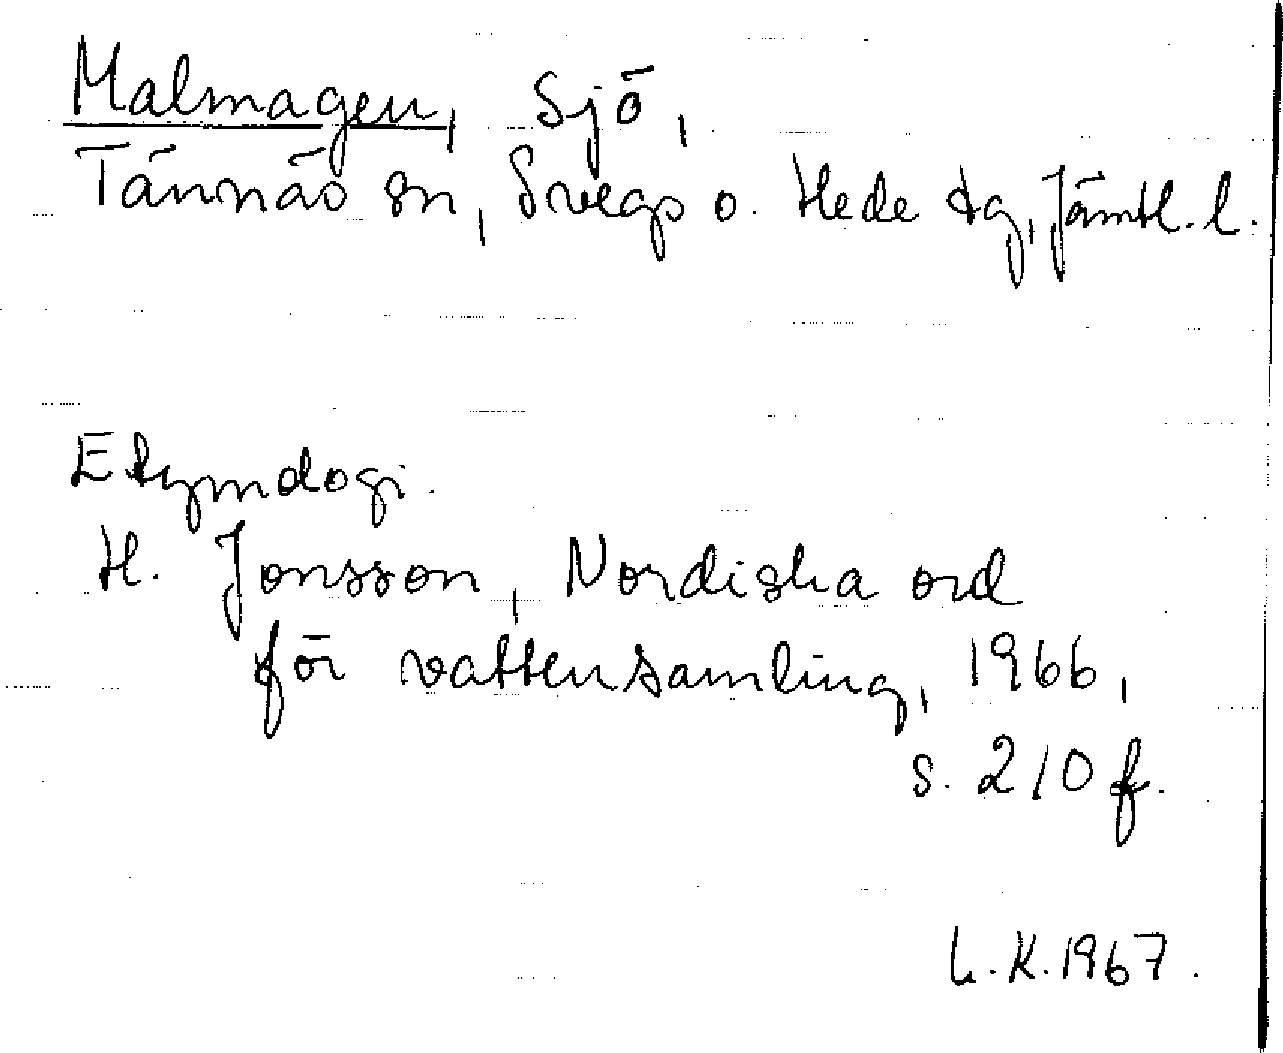 Malmagen, Sjö,
Tännäs sn, Svegs o. Hede tg, Jämtl. l.
Etymologi.
H. Jonsson, Nordiska ord
för vattensamling, 1966,
s. 210 f.
L. K. 1967.